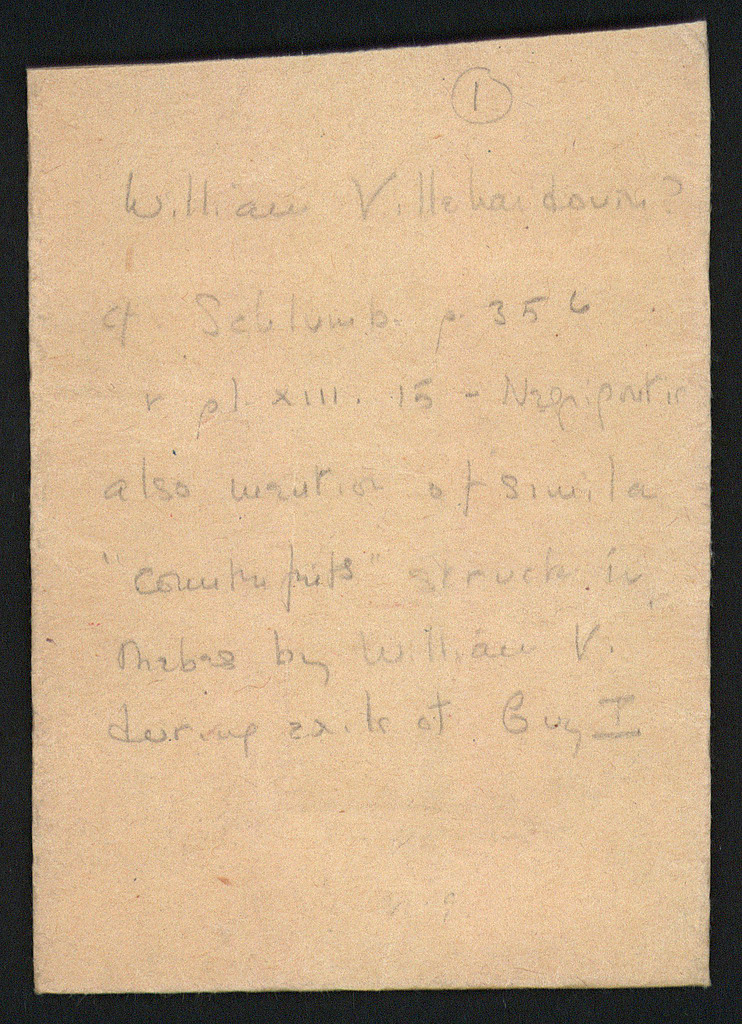 1
William Villehardouin?
cf Schlumb. p. 356
+ pl. XIII. 15 - Negripont in
also mention of simila
"counterfeits" struck in
Thebes by William V.
during exile of Guy I